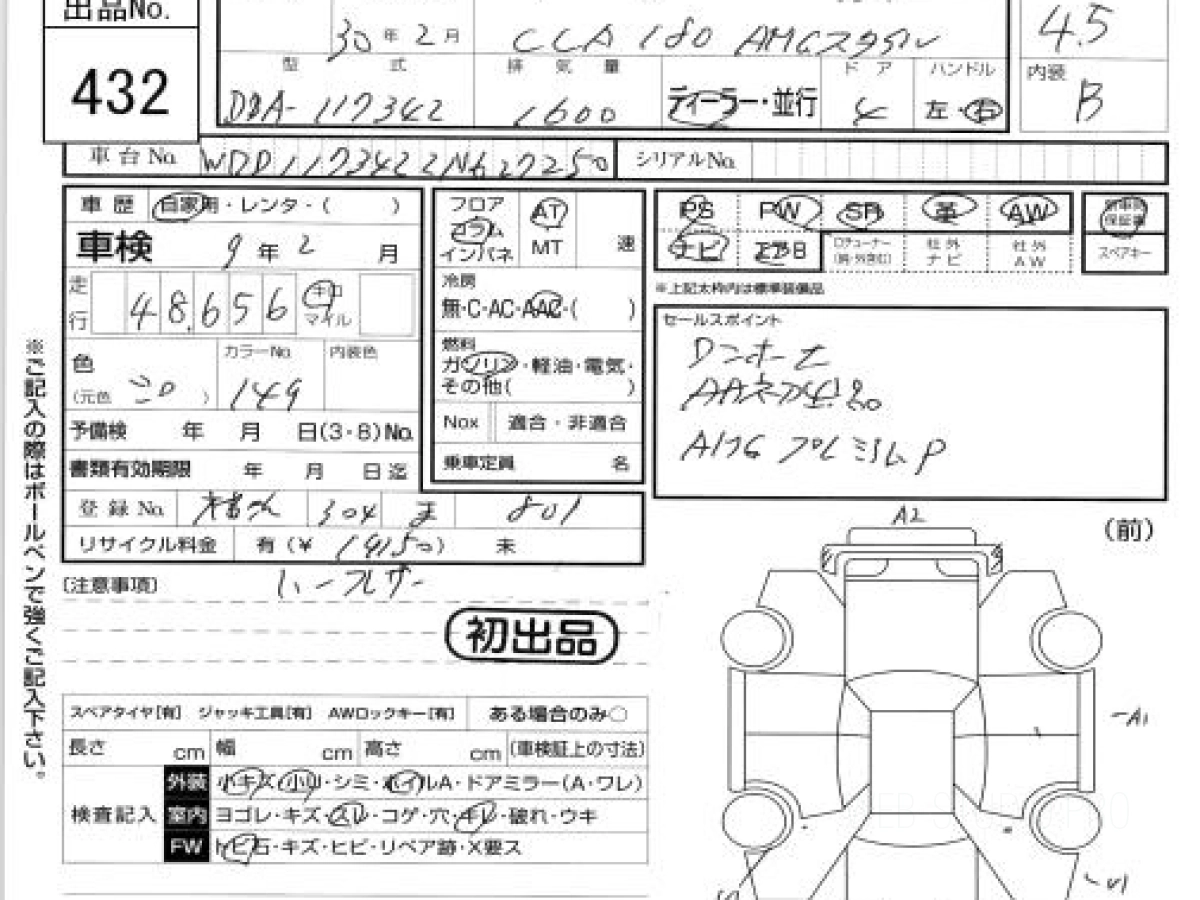 出品No.
432
30年2月 CLA 180 AMGスタイル 4.5
型 式 排 気 量 ドア ハンドル 内装
DBA-117342 1600 ディーラー・並行 4 左・右 B
車台No. WDD1173422N627250 シリアルNo.
車歴 自家用・レンタ・( )
車検 9年2月
走行 48,656 キロ マイル
色 カラーNo. 内装色
(元色 シロ ) 149
予備検 年 月 日(3・8)No.
書類有効期限 年 月 日迄
登録No. 304 ま 801
リサイクル料金 有(¥ 19150) 未
フロア コラム インパネ AT MT 速
冷房
無・C・AC・AAC・( )
燃料
ガソリン・軽油・電気・
その他( )
Nox 適合・非適合
乗車定員 名
PS PW SR 革 AW 新車時保証書
ナビ エアB 社外ナビ 社外AW スペアキー
※上記太枠内は標準装備品
セールスポイント
Dコーナー
AA初出品
AMG プレミアムP
[注意事項] ハーフレザー
初出品
スペアタイヤ[有] ジャッキ工具[有] AWロックキー[有] ある場合のみ○
長さ cm 幅 cm 高さ cm (車検証上の寸法)
検査記入
外装 小キズ・小U・シミ・ホイルA・ドアミラー(A・ワレ)
室内 ヨゴレ・キズ・スレ・コゲ・穴・キレ・破れ・ウキ
FW トビ石・キズ・ヒビ・リペア跡・X要ス
※ご記入の際はボールペンで強くご記入下さい。
A2
(前)
A1
U1